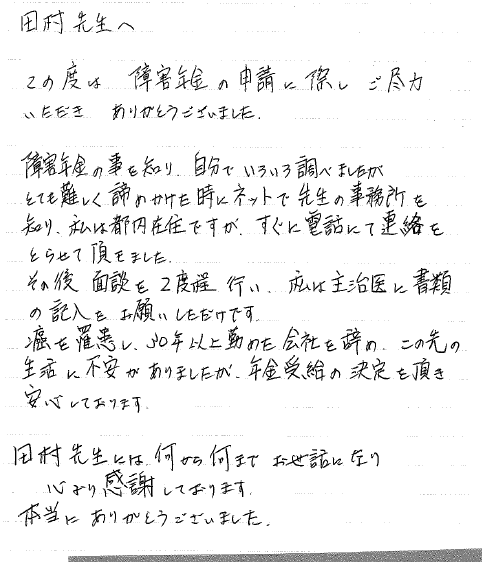 田村先生へ
この度は 障害年金の申請に際し ご尽力
いただき ありがとうございました.
障害年金の事を知り、自分でいろいろ調べましたが
とても難しく諦めかけた時にネットで先生の事務所を
知り、私は都内在住ですが、すぐに電話にて連絡を
とらせて頂きました.
その後 面談を2度程 行い、私は主治医に書類
の記入をお願いしただけです.
癌を罹患し、30年以上勤めた会社を辞め、この先の
生活に不安がありましたが、年金受給の決定を頂き
安心しております.
田村先生には、何から何まで お世話になり
心より感謝しております.
本当に ありがとうございました.